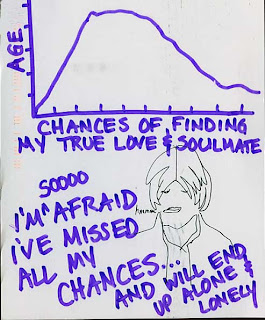 AGE
CHANCES OF FINDING
MY TRUE LOVE & SOULMATE
SOOOO
I'M AFRAID
I'VE MISSED
ALL MY
CHANCES...
AND WILL END
UP ALONE &
LONELY